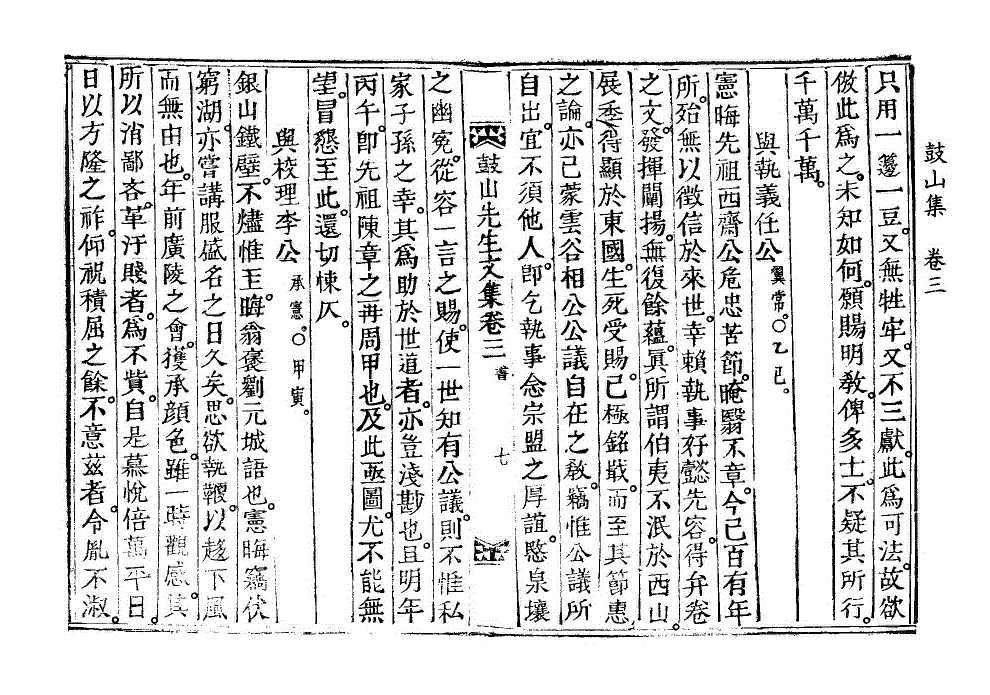 鼓山集　卷三
只用一籩一豆。又無牲牢。又不三獻。此爲可法。故欲
倣此爲之。未知如何。願賜明敎。俾多士。不疑其所行。
千萬千萬。
與執義任公 翼常。○乙巳。
憲晦先祖西齋公危忠苦節。晻翳不章。今已百有年
所。殆無以徵信於來世。幸賴執事好懿先容。得弁卷
之文。發揮闡揚。無復餘蘊。眞所謂伯夷不泯於西山。
展季得顯於東國。生死受賜。已極銘戢。而至其節惠
之論。亦已蒙雲谷相公公議自在之敎。竊惟公議所
自出。宜不須他人。卽乞執事念宗盟之厚誼。愍泉壤
鼓山先生文集卷三 書 七
之幽寃。從容一言之賜。使一世知有公議。則不惟私
家子孫之幸。其爲助於世道者。亦豈淺尠也。且明年
丙午。卽先祖陳章之再周甲也。及此亟圖。尤不能無
望。冒懇至此。還切悚仄。
與校理李公 承憲。○甲寅。
銀山鐵壁。不燼惟王。晦翁褒劉元城語也。憲晦竊伏
窮湖。亦嘗講服盛名之日久矣。思欲執鞭。以趍下風
而無由也。年前廣陵之會。獲承顔色。雖一時觀感。其
所以消鄙吝。革汙賤者。爲不貲。自是慕悅倍萬平日。
日以方隆之祚。仰祝積屈之餘。不意玆者。令胤不淑。